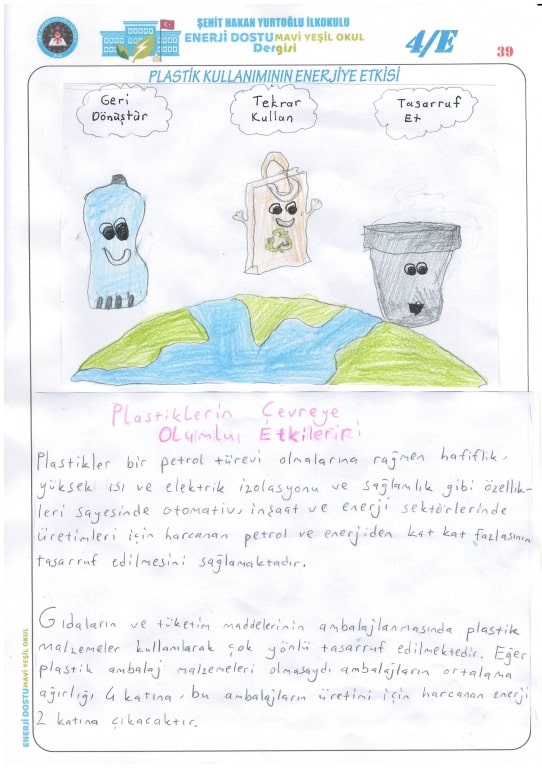 ŞEHİT HAKAN YURTOĞLU İLKOKULU
ENERJİ DOSTU MAVİ YEŞİL OKUL
Dergisi
4/E
39
PLASTİK KULLANIMININ ENERJİYE ETKİSİ
Geri
Dönüştür
Tekrar
Kullan
Tasarruf
Et
Plastiklerin Çevreye
Olumlu Etkileriri
Plastikler bir petrol türevi olmalarına rağmen hafiflik,
yüksek ısı ve elektrik izolasyonu ve sağlamlık gibi özellik-
leri sayesinde otomativ, inşaat ve enerji sektörlerinde
üretimleri için harcanan petrol ve enerjiden kat kat fazlasının
tasarruf edilmesini sağlamaktadır.
Gıdaların ve tüketim maddelerinin ambalajlanmasında plastik
malzemeler kullanılarak çok yönlü tasarruf edilmektedir. Eğer
plastik ambalaj malzemeleri olmasaydı ambalajların ortalama
ağırlığı 4 katına, bu ambalajların üretimi için harcanan enerji
2 katına çıkacaktır.
ENERJİ DOSTU MAVİ YEŞİL OKUL